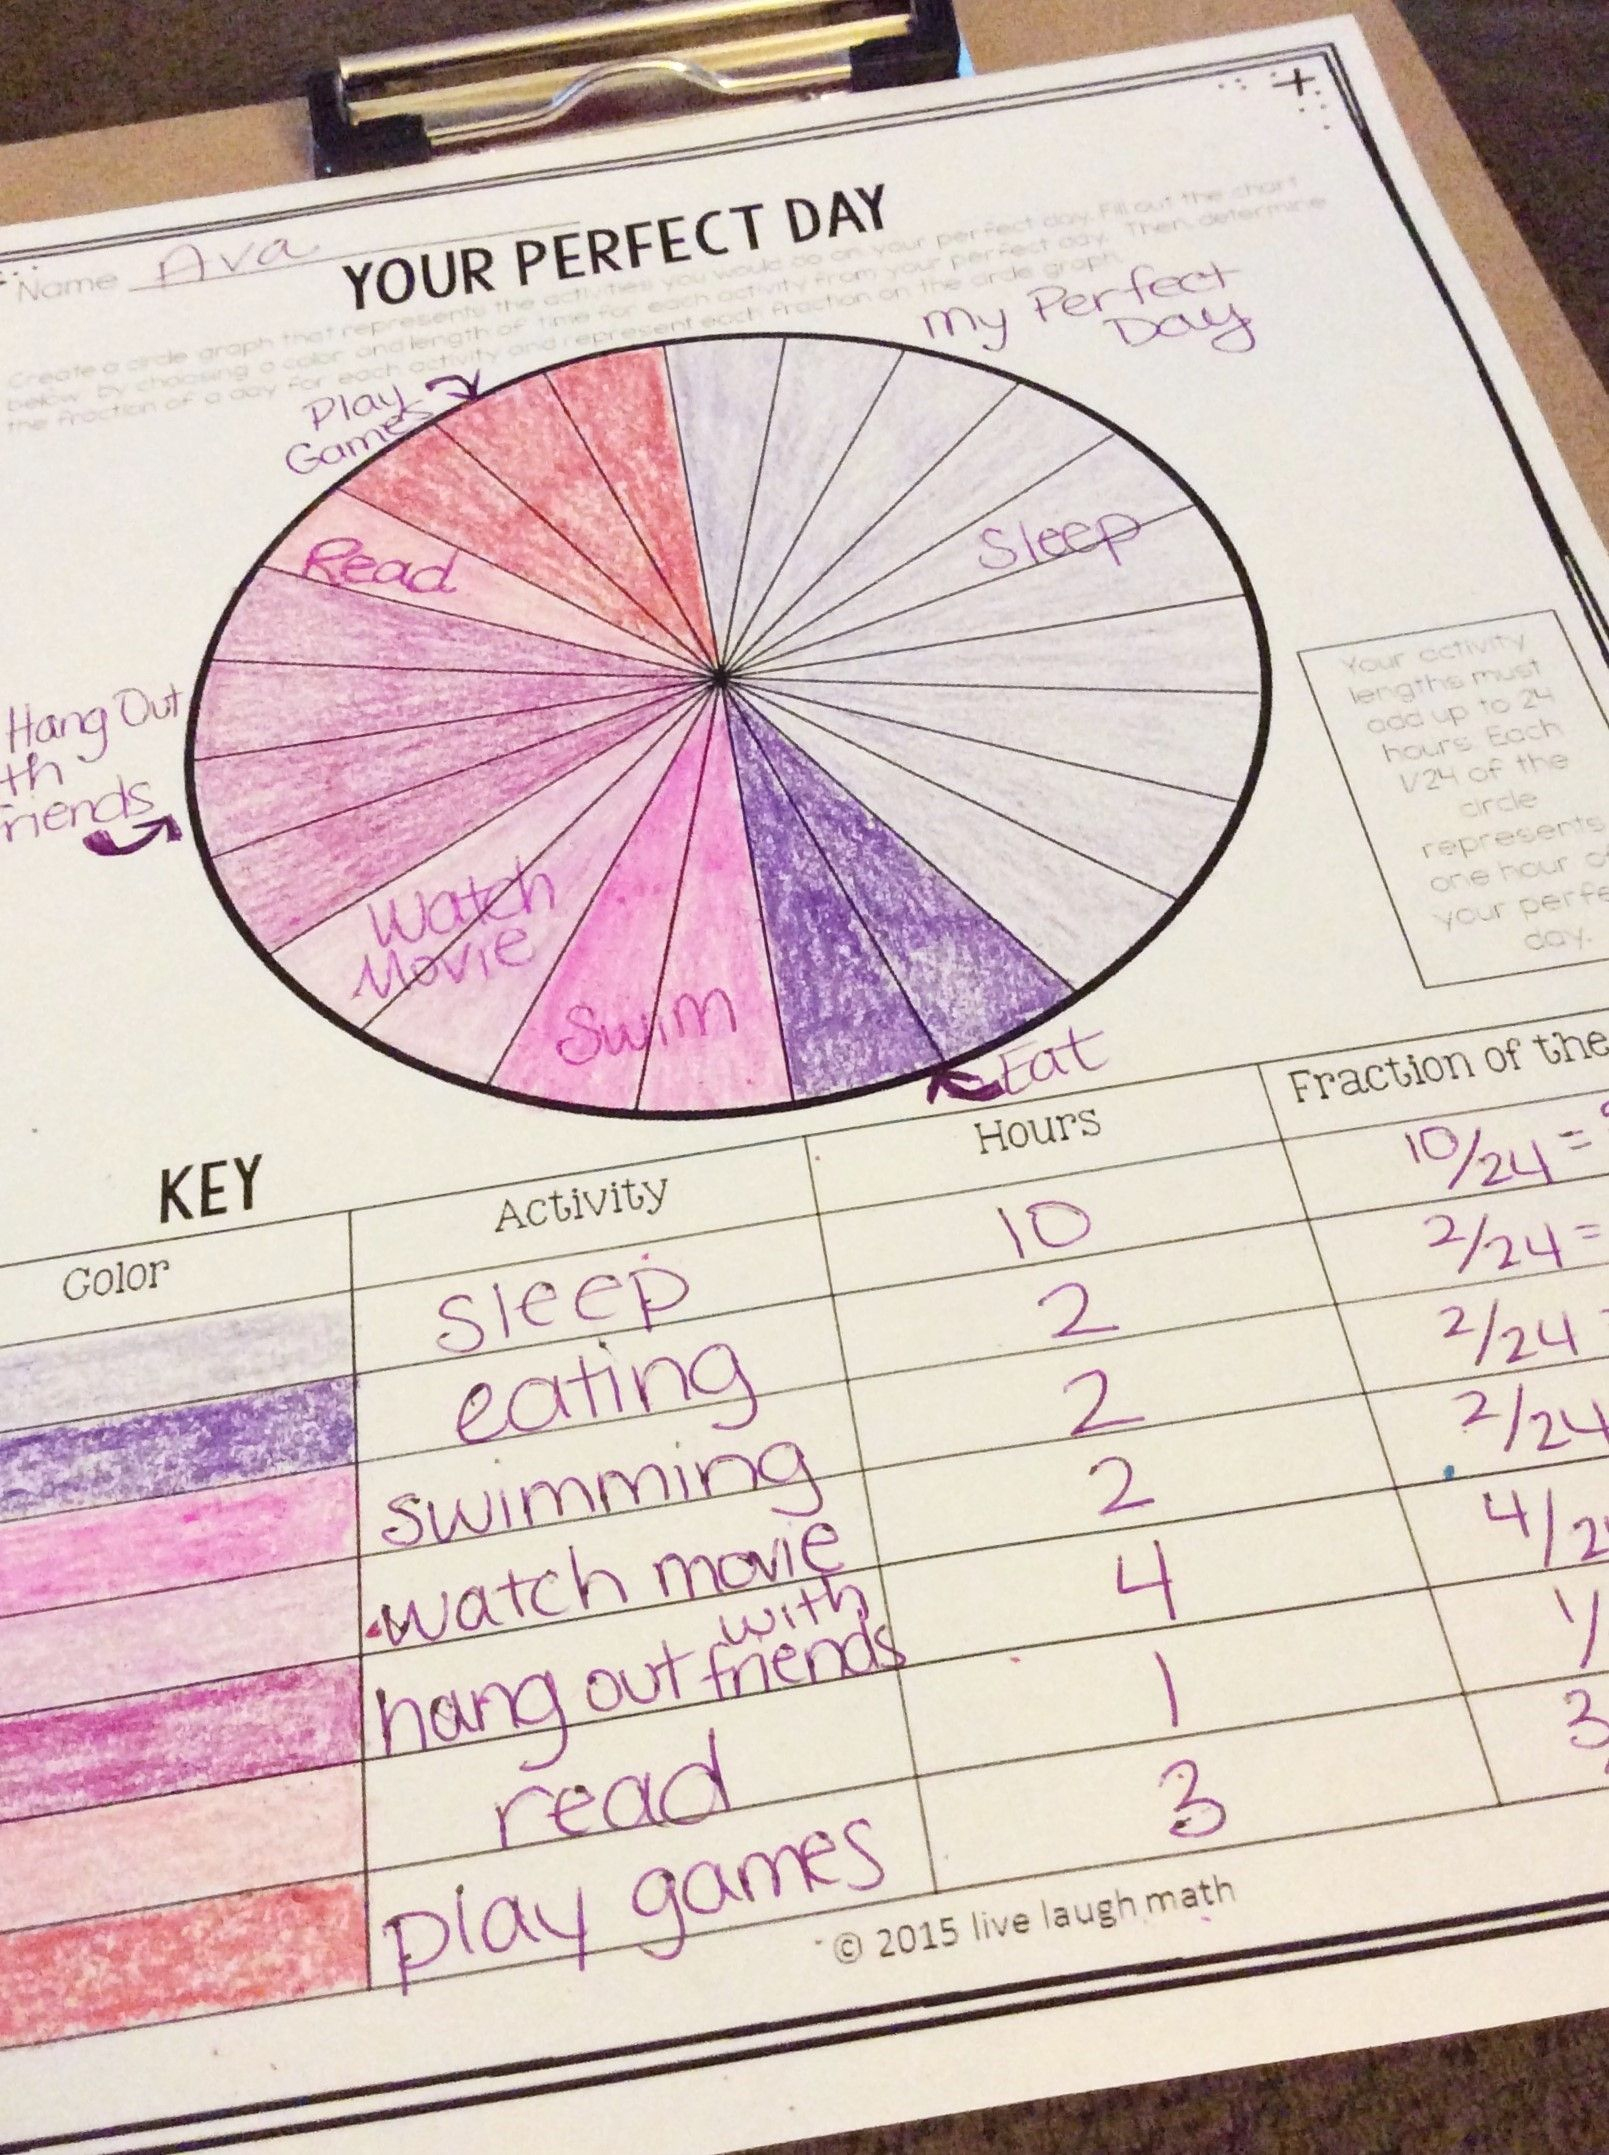 Name Ava
YOUR PERFECT DAY
Create a circle graph that represents the activities you would do on your perfect day. Fill out the chart
below by choosing a color and length of time for each activity from your perfect day. Then, determine
the fraction of a day for each activity and represent each fraction on the circle graph.
My Perfect
Day
Play
Games
Read
Sleep
Hang Out
th
riends
Watch
Movie
Swim
Eat
Your activity
lengths must
add up to 24
hours. Each
1/24 of the
circle
represents
one hour of
your perfe
day.
KEY
Color Activity Hours Fraction of the
sleep 10 10/24 =
eating 2 2/24 =
swimming 2 2/24
watch movie 2 2/24
hang out with friends 4 4/2
read 1 1/
play games 3 3
© 2015 live laugh math